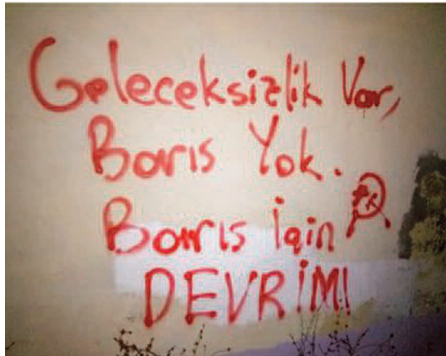 Geleceksizlik Var,
Barıs Yok.
Barıs İçin
DEVRİM!